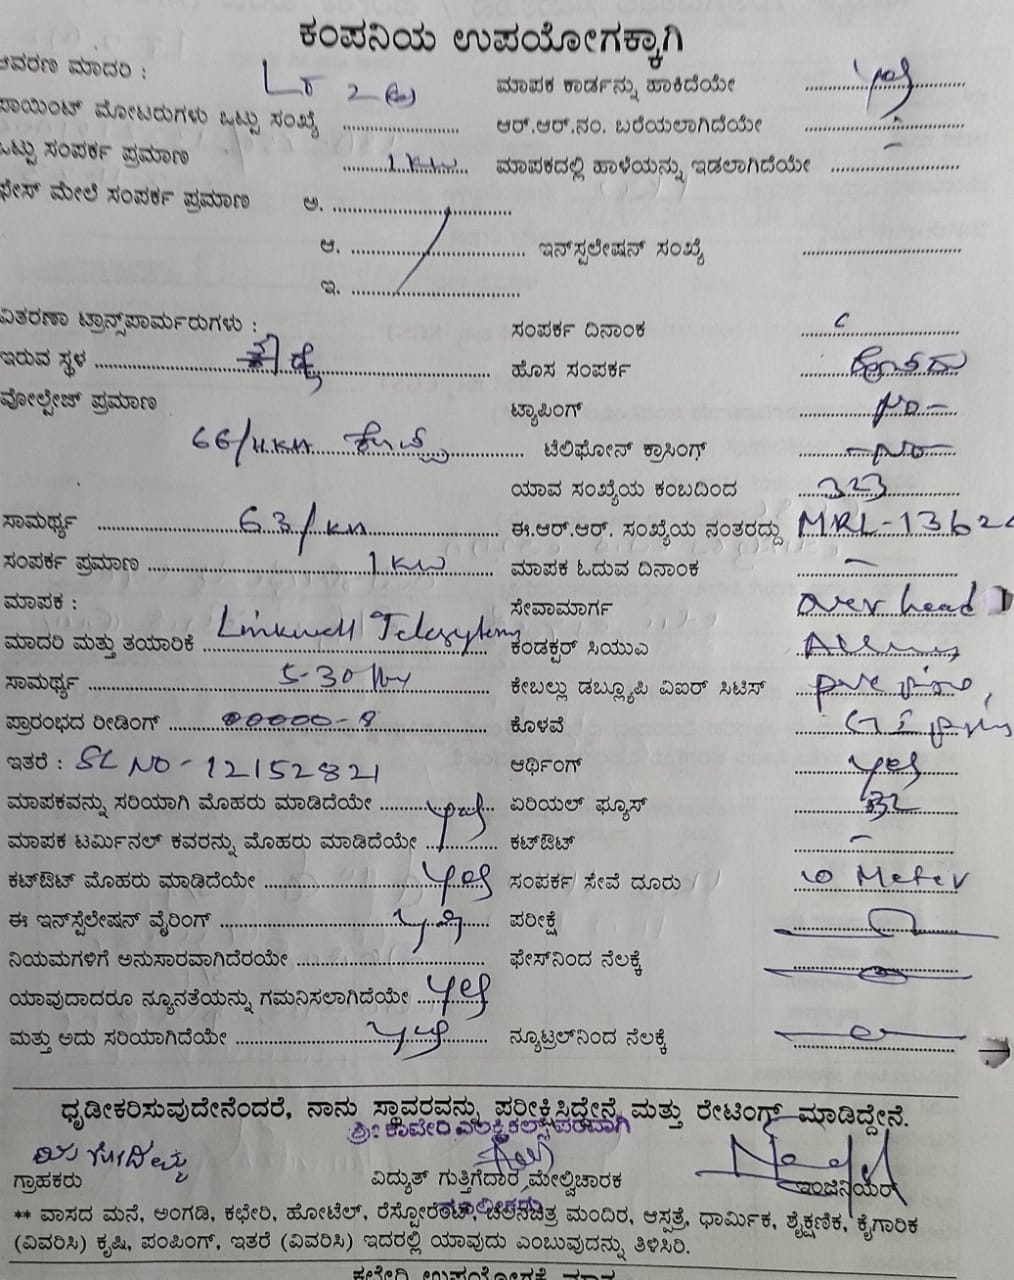 ಕಂಪನಿಯ ಉಪಯೋಗಕ್ಕಾಗಿ
ಆವರಣ ಮಾದರಿ : LT 2 ಮಾಪಕ ಕಾರ್ಡನ್ನು ಹಾಕಿದೆಯೇ yes
ಪಾಯಿಂಟ್ ಮೋಟರುಗಳು ಒಟ್ಟು ಸಂಖ್ಯೆ ಆರ್.ಆರ್.ನಂ. ಬರೆಯಲಾಗಿದೆಯೇ -
ಒಟ್ಟು ಸಂಪರ್ಕ ಪ್ರಮಾಣ 1 KW ಮಾಪಕದಲ್ಲಿ ಹಾಳೆಯನ್ನು ಇಡಲಾಗಿದೆಯೇ -
ಫೇಸ್ ಮೇಲೆ ಸಂಪರ್ಕ ಪ್ರಮಾಣ ಅ.
ಆ. ಇನ್‌ಸ್ಪಲೇಷನ್ ಸಂಖ್ಯೆ
ಇ.
ವಿತರಣಾ ಟ್ರಾನ್ಸ್‌ಪಾರ್ಮರುಗಳು : ಸಂಪರ್ಕ ದಿನಾಂಕ
ಇರುವ ಸ್ಥಳ ಹೊಸ ಸಂಪರ್ಕ
ವೋಲ್ಟೇಜ್ ಪ್ರಮಾಣ ಟ್ಯಾಪಿಂಗ್ NO -
66/11 ಟೆಲಿಫೋನ್ ಕ್ರಾಸಿಂಗ್ - NO -
ಯಾವ ಸಂಖ್ಯೆಯ ಕಂಬದಿಂದ 323
ಸಾಮರ್ಥ್ಯ 63/ ಈ.ಆರ್.ಆರ್. ಸಂಖ್ಯೆಯ ನಂತರದ್ದು MRL-1362
ಸಂಪರ್ಕ ಪ್ರಮಾಣ 1 KW ಮಾಪಕ ಓದುವ ದಿನಾಂಕ -
ಮಾಪಕ : ಸೇವಾಮಾರ್ಗ over head
ಮಾದರಿ ಮತ್ತು ತಯಾರಿಕೆ Linkwell Telesystems ಕಂಡಕ್ಟರ್ ಸಿಯುಎ
ಸಾಮರ್ಥ್ಯ 5-30 ಕೇಬಲ್ಲು ಡಬ್ಲ್ಯೂಪಿ ವಿಐರ್ ಸಿಟಿಸ್ pvc
ಪ್ರಾರಂಭದ ರೀಡಿಂಗ್ 00000-8 ಕೊಳವೆ
ಇತರೆ : SL NO - 12152821 ಆರ್ಥಿಂಗ್ yes
ಮಾಪಕವನ್ನು ಸರಿಯಾಗಿ ಮೊಹರು ಮಾಡಿದೆಯೇ yes ಏರಿಯಲ್ ಫ್ಯೂಸ್ 32
ಮಾಪಕ ಟರ್ಮಿನಲ್ ಕವರನ್ನು ಮೊಹರು ಮಾಡಿದೆಯೇ ಕಟ್‌ಔಟ್ -
ಕಟ್‌ಔಟ್ ಮೊಹರು ಮಾಡಿದೆಯೇ yes ಸಂಪರ್ಕ ಸೇವೆ ದೂರು 10 Meter
ಈ ಇನ್‌ಸ್ಪೆಲೇಷನ್ ವೈರಿಂಗ್ yes ಪರೀಕ್ಷೆ
ನಿಯಮಗಳಿಗೆ ಅನುಸಾರವಾಗಿದೆರಯೇ ಫೇಸ್‌ನಿಂದ ನೆಲಕ್ಕೆ
ಯಾವುದಾದರೂ ನ್ಯೂನತೆಯನ್ನು ಗಮನಿಸಲಾಗಿದೆಯೇ yes
ಮತ್ತು ಅದು ಸರಿಯಾಗಿದೆಯೇ yes ನ್ಯೂಟ್ರಲ್‌ನಿಂದ ನೆಲಕ್ಕೆ
ಧೃಡೀಕರಿಸುವುದೇನೆಂದರೆ, ನಾನು ಸ್ಥಾವರವನ್ನು ಪರೀಕ್ಷಿಸಿದ್ದೇನೆ ಮತ್ತು ರೇಟಿಂಗ್ ಮಾಡಿದ್ದೇನೆ.
ಶ್ರೀ ಕಾವೇರಿ ಎಲೆಕ್ಟ್ರಿಕಲ್ಸ್ ಪರವಾಗಿ
ಗ್ರಾಹಕರು ವಿದ್ಯುತ್ ಗುತ್ತಿಗೆದಾರ ಮೇಲ್ವಿಚಾರಕ ಇಂಜಿನಿಯರ್
ಮಾಲೀಕರು
** ವಾಸದ ಮನೆ, ಅಂಗಡಿ, ಕಛೇರಿ, ಹೋಟೆಲ್, ರೆಸ್ಟೋರೆಂಟ್, ಚಲನಚಿತ್ರ ಮಂದಿರ, ಆಸ್ಪತ್ರೆ, ಧಾರ್ಮಿಕ, ಶೈಕ್ಷಣಿಕ, ಕೈಗಾರಿಕ
(ವಿವರಿಸಿ) ಕೃಷಿ, ಪಂಪಿಂಗ್, ಇತರೆ (ವಿವರಿಸಿ) ಇದರಲ್ಲಿ ಯಾವುದು ಎಂಬುವುದನ್ನು ತಿಳಿಸಿರಿ.